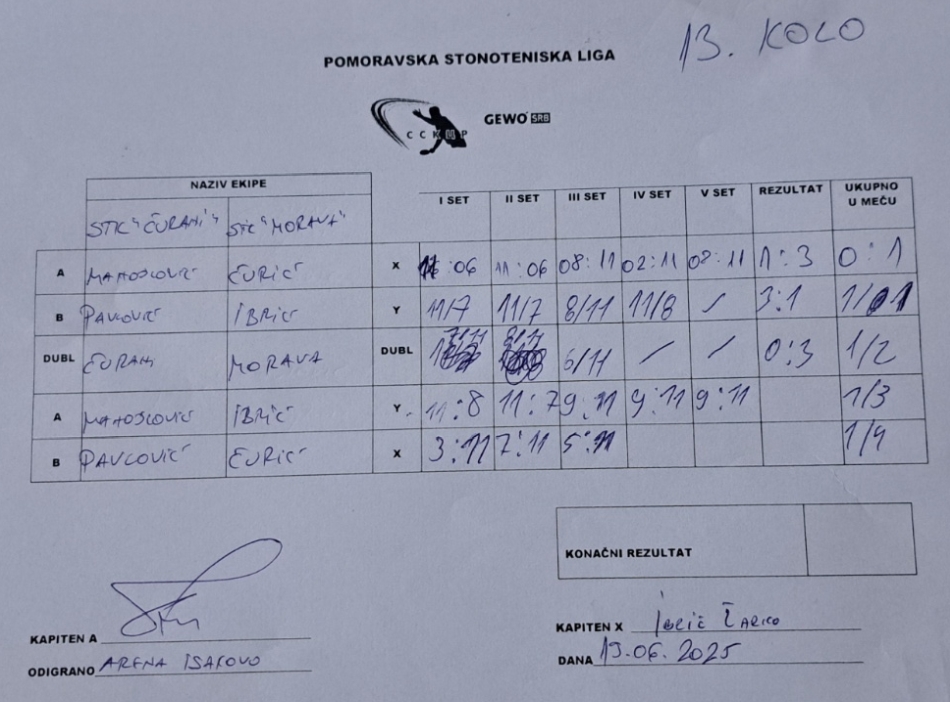 13. KOLO
POMORAVSKA STONOTENISKA LIGA
ССКПР GEWO SRB
NAZIV EKIPE I SET II SET III SET IV SET V SET REZULTAT UKUPNO U MEČU
STK "ĆURANI" STK "MORAVA"
A MANOJLOVIĆ ĆURIĆ X 11:06 11:06 08:11 02:11 08:11 1:3 0:1
B PAVLOVIĆ IBRIĆ Y 11/7 11/7 8/11 11/8 / 3:1 1/1
DUBL ĆURANI MORAVA DUBL 7/11 8/11 6/11 / / 0:3 1/2
A MANOJLOVIĆ IBRIĆ Y 11:8 11:7 9:11 9:11 9:11 1/3
B PAVLOVIĆ ĆURIĆ X 3:11 7:11 5:11 1/4
KONAČNI REZULTAT
KAPITEN A
KAPITEN X Ibrić Žarko
ODIGRANO ARENA ISAKOVO
DANA 13.06.2025